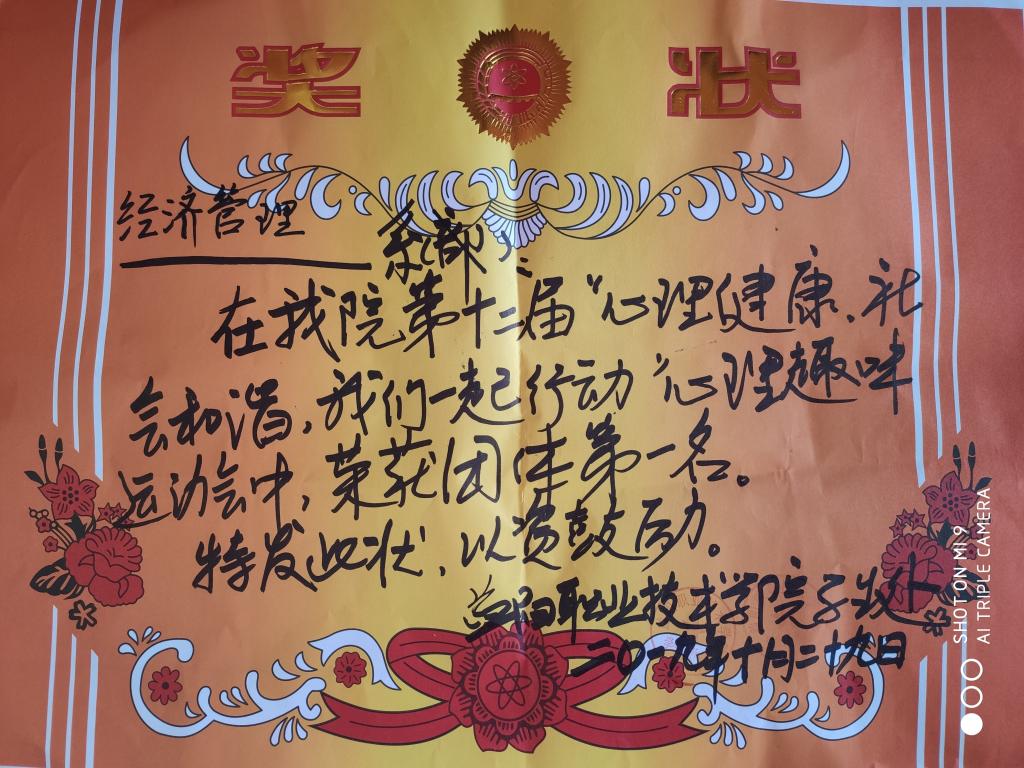 奖 状
经济管理系部：
在我院第十二届“心理健康、社
会和谐，我们一起行动”心理趣味
运动会中，荣获团体第一名。
特发此状，以资鼓励。
职业技术学院学生处
二〇一九年十月二十九日
SHOT ON MI 9
AI TRIPLE CAMERA